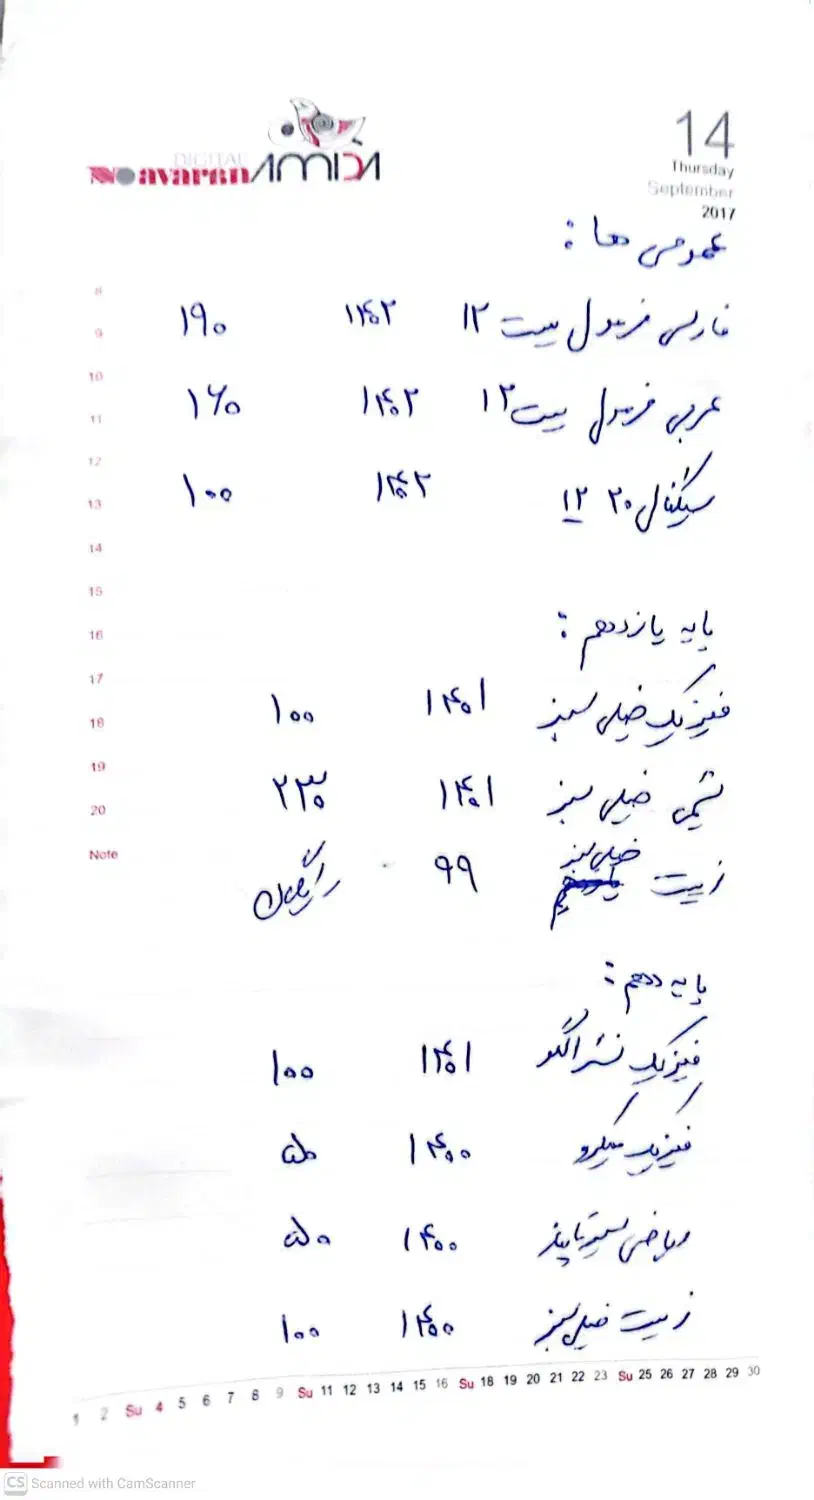 DIGITAL
Noavaran AMIDA
14
Thursday
September
2017
عمومی ها :
فارسی فرمول بیست ۱۲ ۱۴۰۲ ۱۹۰
عربی فرمول بیست ۱۲ ۱۴۰۲ ۱۶۰
سیگنال ۲۰ ۱۲ ۱۴۰۲ ۱۰۰
پایه یازدهم :
فیزیک خیلی سبز ۱۴۰۱ ۱۰۰
شیمی خیلی سبز ۱۴۰۱ ۲۳۰
زیست خیلی سبز ۹۹ رایگان
پایه دهم :
فیزیک نشر الگو ۱۴۰۱ ۱۰۰
فیزیک میکرو ۱۴۰۰ ۵۰
ریاضی سیر تا پیاز ۱۴۰۰ ۵۰
زیست خیلی سبز ۱۴۰۰ ۱۰۰
8
9
10
11
12
13
14
15
16
17
18
19
20
Note
1 2 Su 4 5 6 7 8 9 Su 11 12 13 14 15 16 Su 18 19 20 21 22 23 Su 25 26 27 28 29 30
CS Scanned with CamScanner